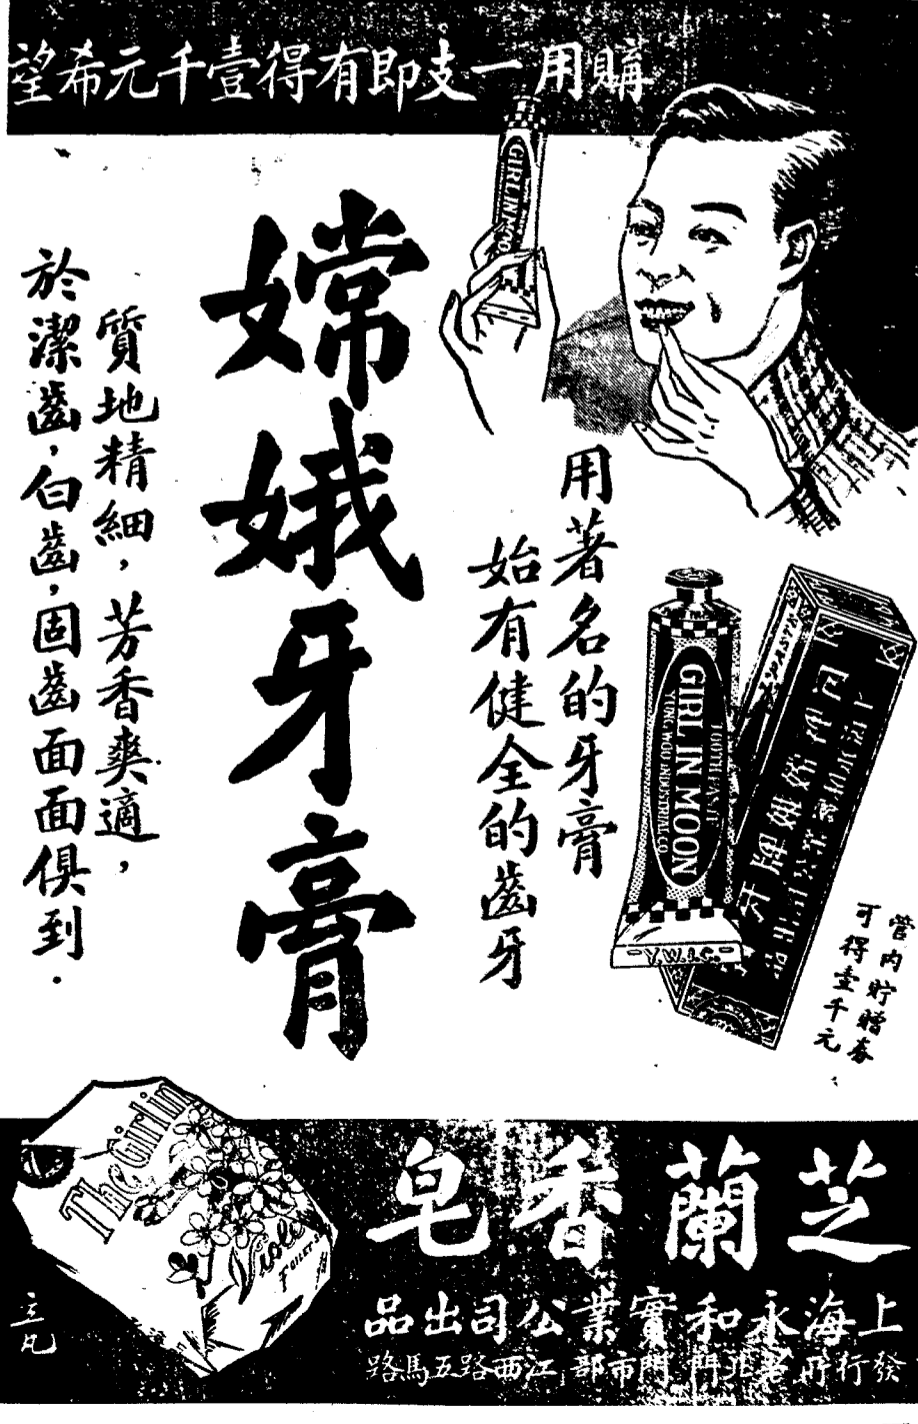 購用一支即有得壹千元希望
GIRL IN MOON
用著名的牙膏
始有健全的齒牙
嫦娥牙膏
質地精細，芳香爽適，
於潔齒，白齒，固齒面面俱到．
GIRL IN MOON
TOOTH PASTE
YUNG WOO INDUSTRIAL CO
Y.W.I.C.
管内貯贈券
可得壹千元
The Girl in
Violet
TOILET
芝蘭香皂
上海永和實業公司出品
發行所老北門 門市部江西路五馬路
立凡